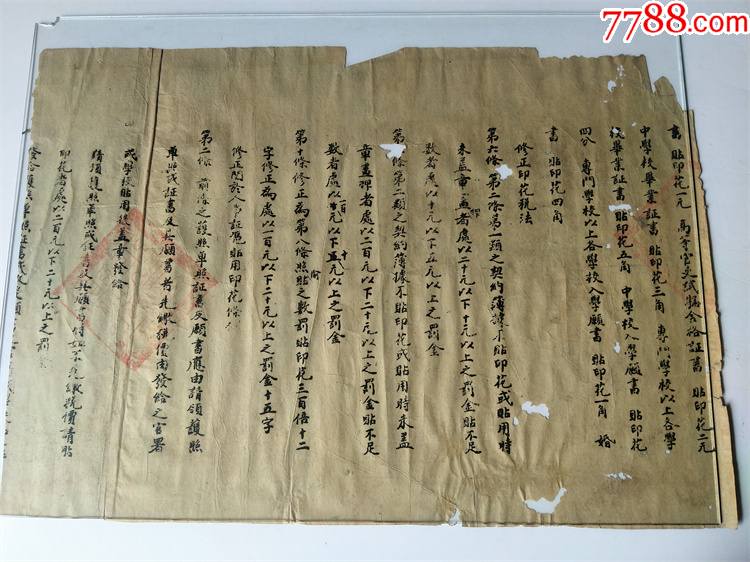 7788.com
書 貼印花一元 高等官文試驗合格証書 貼印花二元
中學校畢業証書 貼印花三角 專門學校以上各學
校畢業証書 貼印花五角 中學校入學願書 貼印花
四分 專門學校以上各學校入學願書 貼印花一角 婚
書 貼印花四角
修正印花稅法
第六條 第二條第一類之契約簿據不貼印花或貼用時
未蓋章畫押者處以二十元以下十元以上之罰金貼不足
數者處以十元以下五元以上之罰金
第 條 第二類之契約簿據不貼印花或貼用時未蓋
章畫押者處以二百元以下二十元以上之罰金貼不足
數者處以一百元以下十元以上之罰金
第十條修正為第八條照貼之數罰貼印花三百倍十二
字修正為處以一百元以下二十元以上之罰金十五字
修正關於人事証憑貼用印花條
第二條 前條之護照單照証書及願書應由請領護照
單照或証書及具願書者先繳 價由發給之官署
或學校貼用後蓋章發給
請領護照單照或証書及具願書 價請貼
印花者處以二百元以下二十元以上之罰
發給護照單照証書或收受願